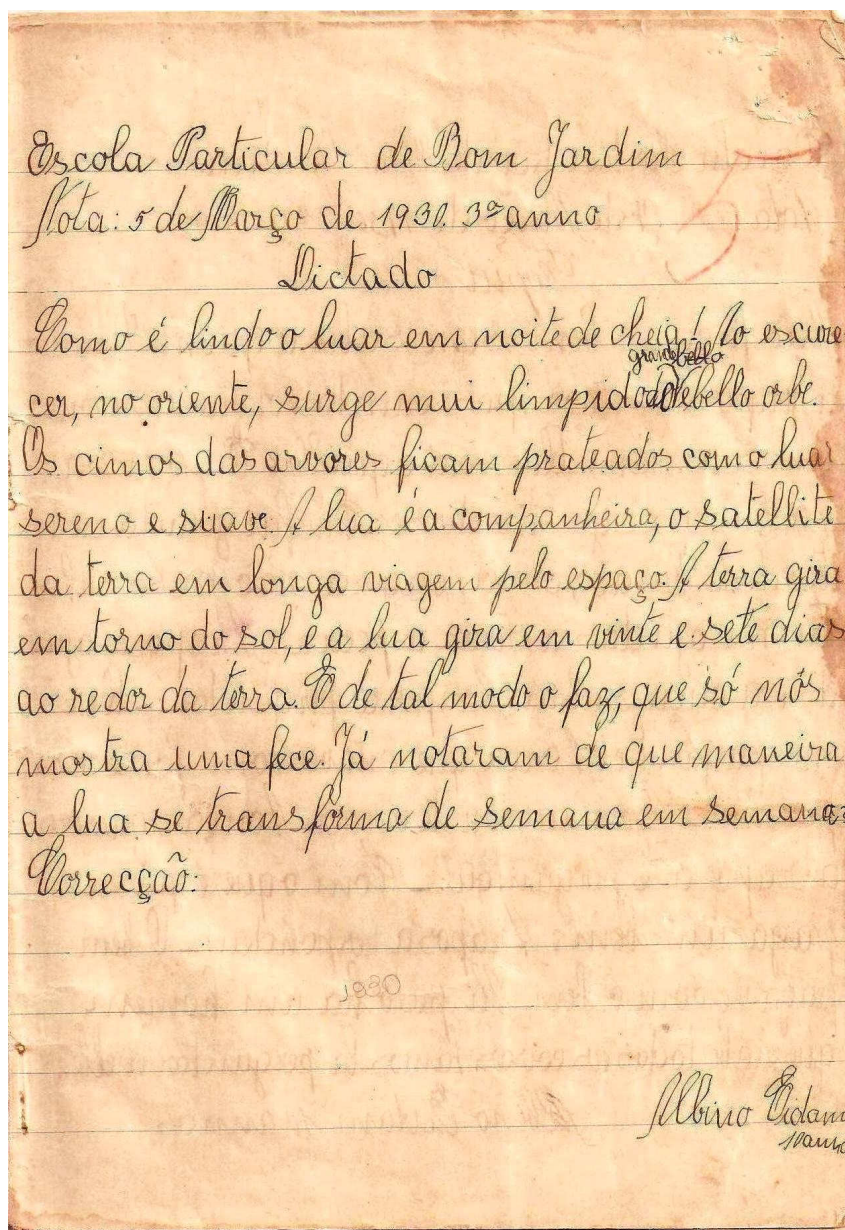 Escola Particular de Bom Jardim
Nota: 5 de Março de 1930. 3º anno
5
Dictado
Como é lindo o luar em noite de cheia! Ao escure
grande bello
cer, no oriente, surge mui limpido e bello orbe.
Os cimos das arvores ficam prateados como luar
sereno e suave. A lua é a companheira, o satellite
da terra em longa viagem pelo espaço. A terra gira
em torno do sol, e a lua gira em vinte e sete dias
ao redor da terra. E de tal modo o faz, que só nós
mostra uma fece. Já notaram de que maneira
a lua se transforma de semana em semana?
Correcção:
1930
Albino Eidam
10 anno